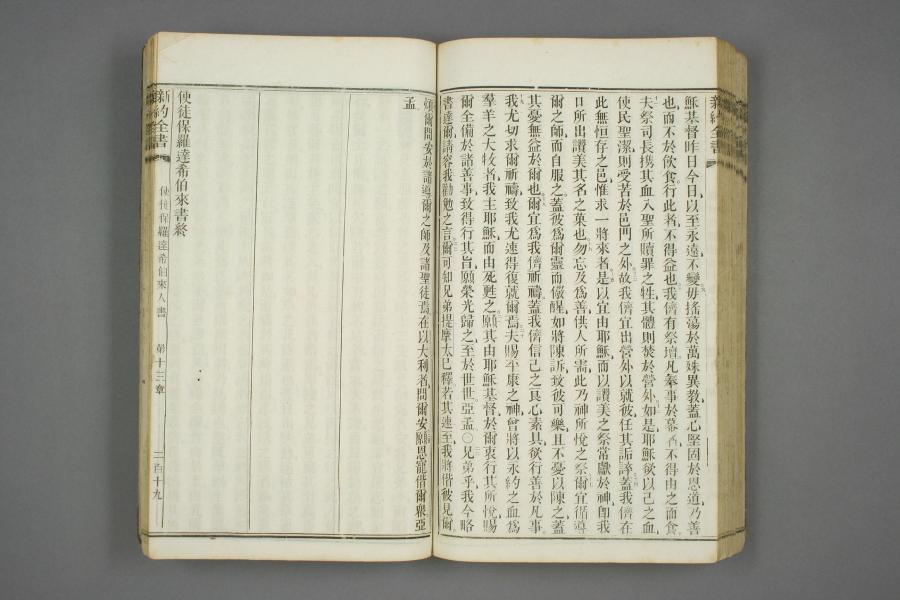 新約全書
穌基督昨日今日以至永遠不變毋搖蕩於萬殊異教蓋心堅固於恩道乃善
也而不於飲食行此者不得益也我儕有祭壇凡奉事於幕者不得由之而食
夫祭司長携其血入聖所贖罪之牲其體則焚於營外如是耶穌欲以己之血
使民聖潔則受苦於邑門之外故我儕宜出營外以就彼任其詬誶蓋我儕在
此無恒存之邑惟求一將來者是以宜由耶穌而以讚美之祭常獻於神卽我
口所出讚美其名之菓也勿忘及爲善供人所需此乃神所悅之祭爾宜循導
爾之師而自服之蓋彼爲爾靈而儆醒如將陳訴致彼可樂且不憂以陳之蓋
其憂無益於爾也爾宜爲我儕祈禱蓋我儕信己之良心素具欲行善於凡事
我尤切求爾祈禱致我尤速得復就爾焉夫賜平康之神曾將以永約之血爲
羣羊之大牧者我主耶穌而由死甦之願其由耶穌基督於爾衷行其所悅賜
爾全備於諸善事致得行其旨願榮光歸之至於世世亞孟〇兄弟乎我今略
書達爾請容我勸勉之言爾可知兄弟提摩太已釋若其速至我將偕彼見爾
煩爾問安於諸導爾之師及諸聖徒焉在以大利者問爾安願恩寵偕爾衆亞
孟
使徒保羅達希伯來書終
新約全書
使徒保羅達希伯來人書 第十三章 二百十九